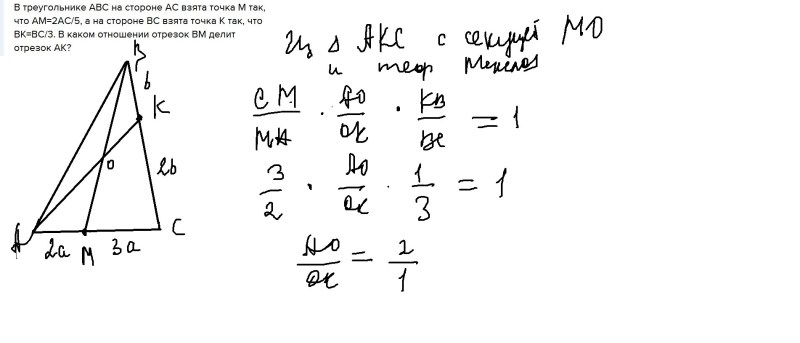 В треугольнике ABC на стороне AC взята точка M так,
что AM=2AC/5, а на стороне BC взята точка K так, что
BK=BC/3. В каком отношении отрезок BM делит
отрезок AK?
B
b
K
O
2b
A
2a
M
3a
C
Из Δ AKC с секущей MO
и теор Менелая
CM/MA · AO/OK · KB/BC = 1
3/2 · AO/OK · 1/3 = 1
AO/OK = 2/1